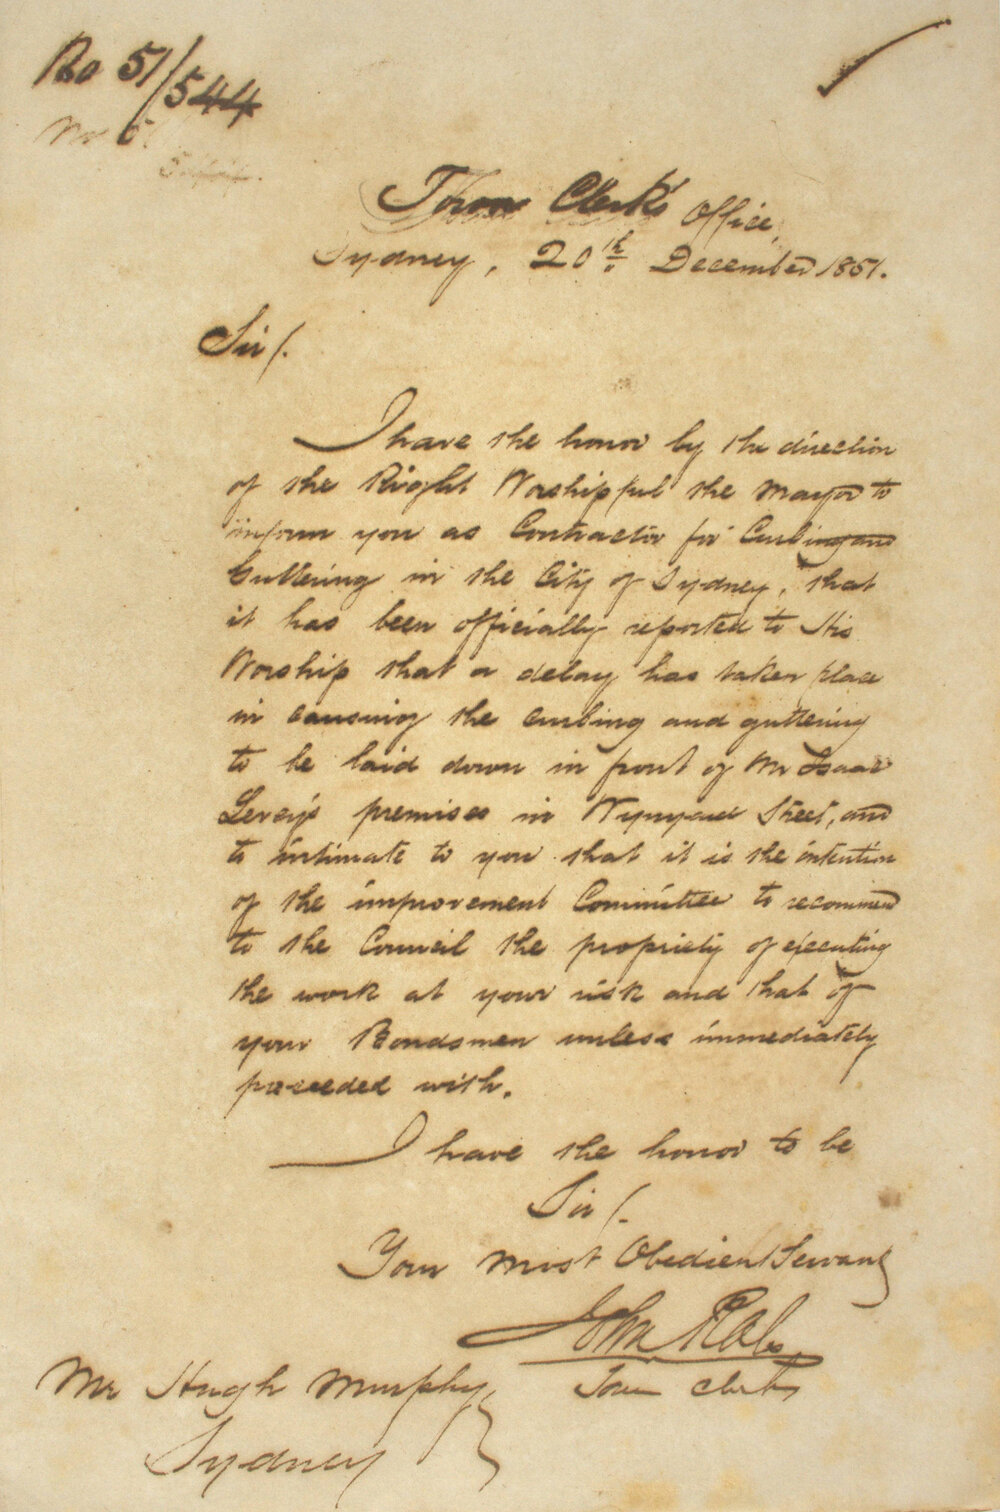 No 51/544
No 5
544.
Town Clerk's Office,
Sydney, 20th December 1851.
Sir/.
I have the honor by the direction
of the Right Worshipful the Mayor to
inform you as Contractor for Curbing and
Guttering in the City of Sydney, that
it has been officially reported to His
Worship that a delay has taken place
in causing the curbing and guttering
to be laid down in front of Mr Isaac
Levey's premises in Wynyard Street, and
to intimate to you that it is the intention
of the improvement Committee to recommend
to the Council the propriety of executing
the work at your risk and that of
your Bondsmen unless immediately
proceeded with.
I have the honor to be
Sir/.
Your most Obedient Servant
John Rae
Town Clerk
Mr Hugh Murphy
Sydney